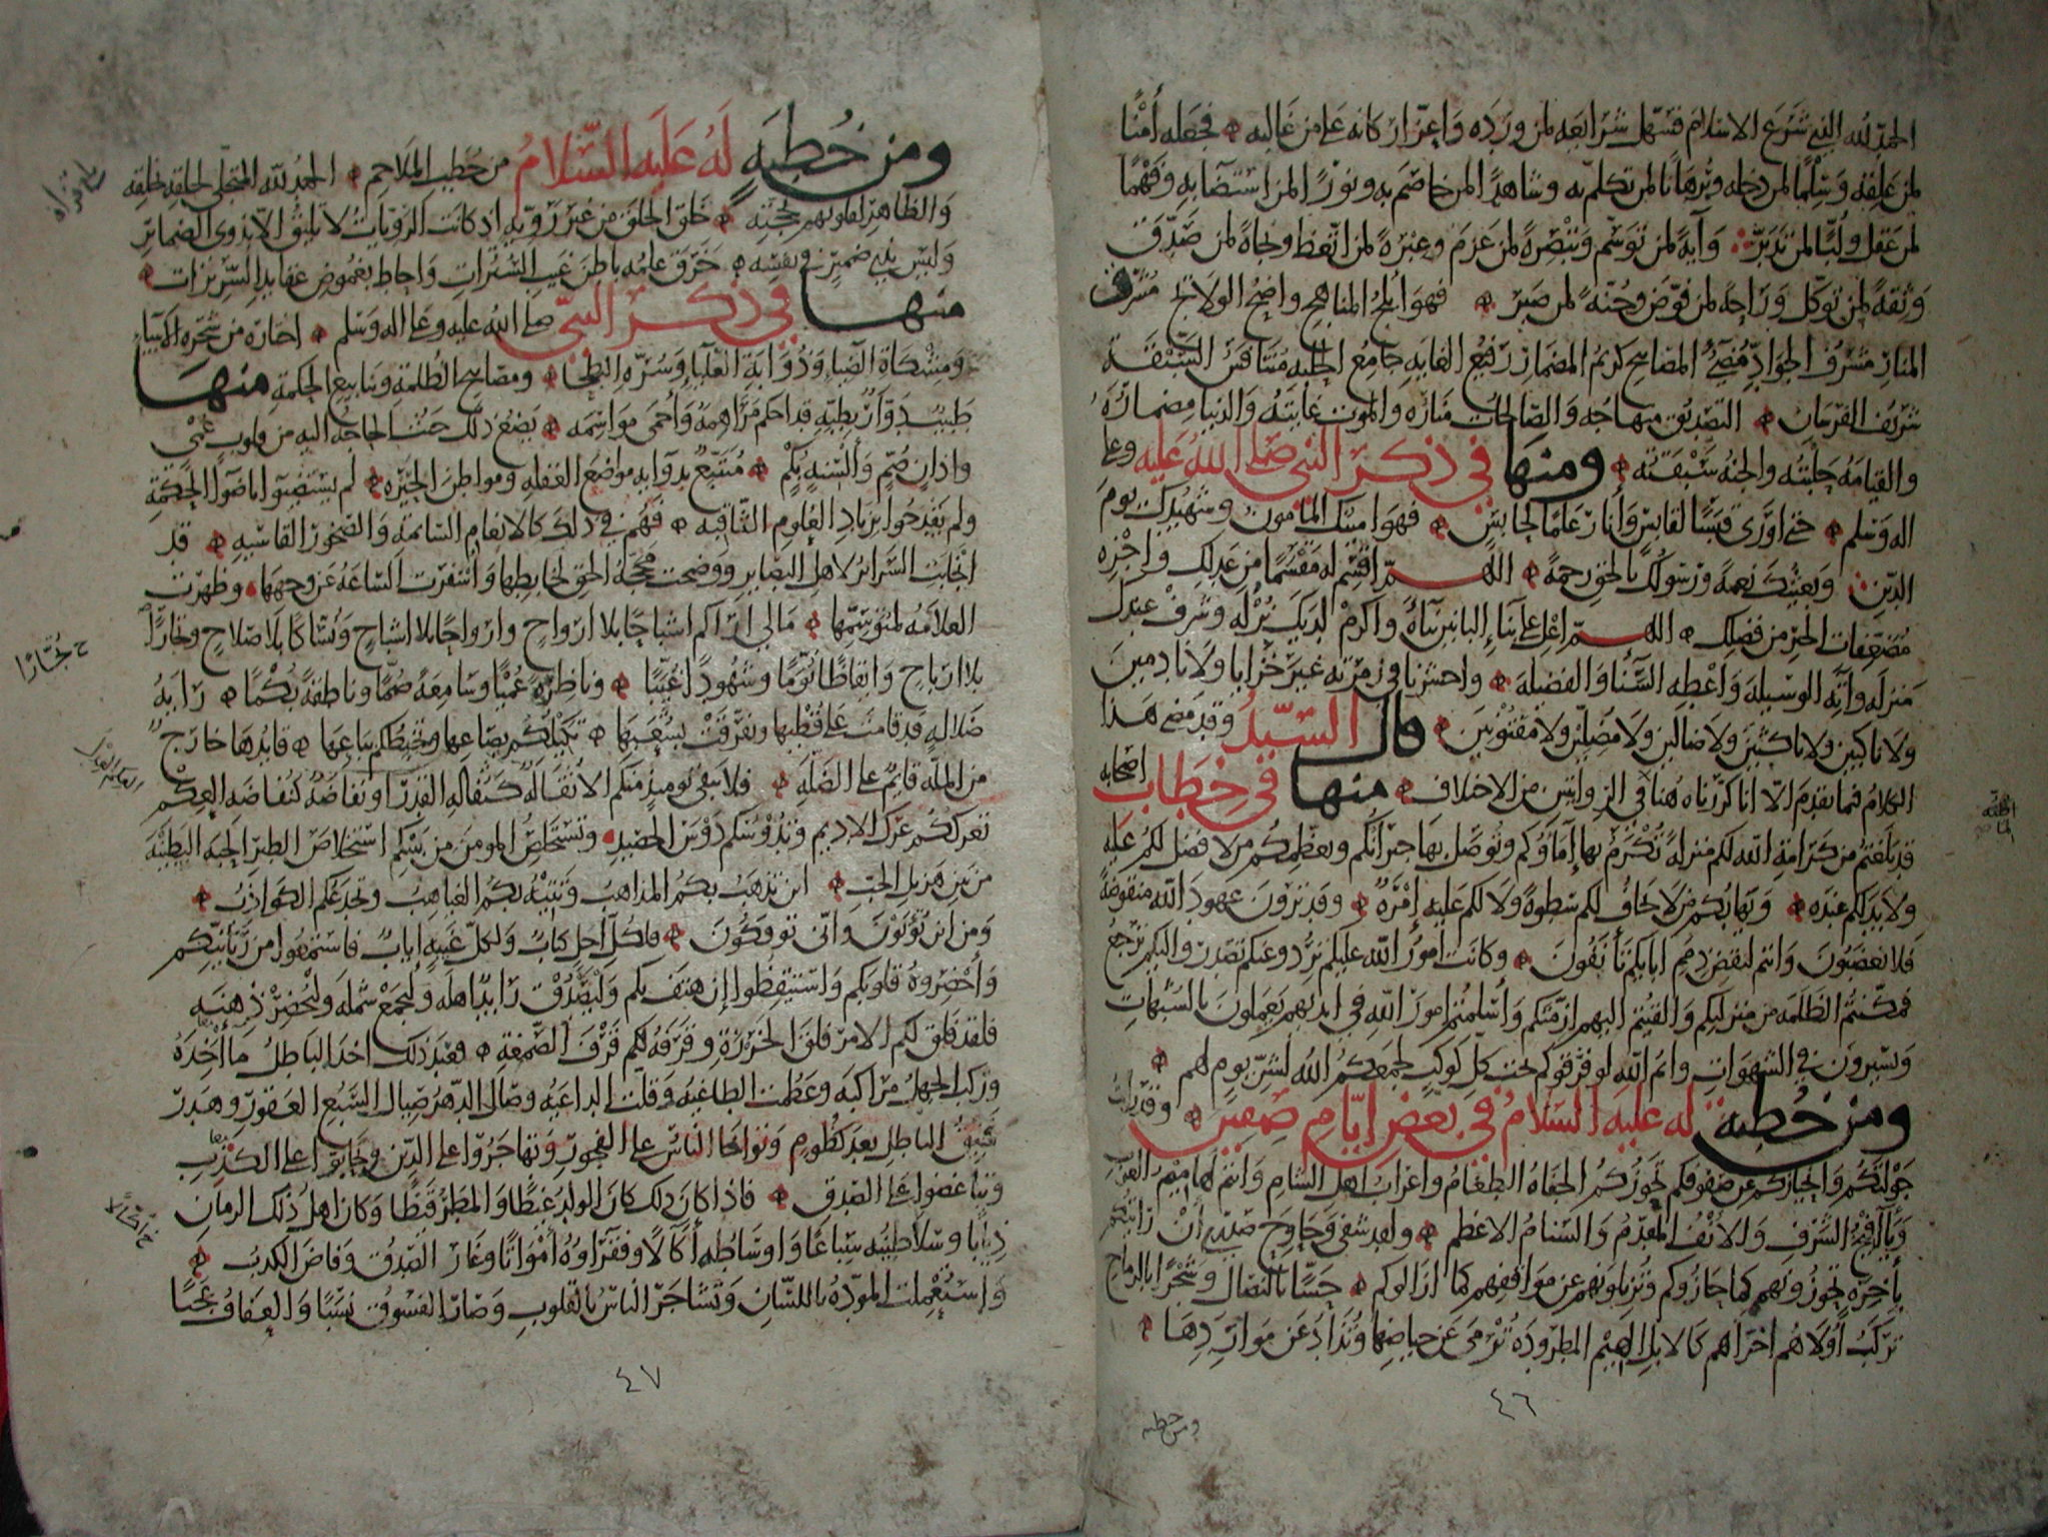 الحمد لله الذي شرع الاسلام فسهل شرائعه لمن ورده واعز اركانه على من غالبه فجعله أمنًا
لمن علقه وسلمًا لمن دخله وبرهانًا لمن تكلم به وشاهدًا لمن خاصم به ونورًا لمن استضاء به وفهمًا
لمن عقل ولبًا لمن تدبر وآية لمن توسم وتبصرة لمن عزم وعبرة لمن اتعظ ونجاة لمن صدق
وثقة لمن توكل وراحة لمن فوض وجنة لمن صبر فهو ابلج المناهج واضح الولائج مشرف
المنار مشرق الجواد مضيء المصابيح كريم المضمار رفيع الغاية جامع الحلبة متنافس السبقة
شريف الفرسان التصديق منهاجه والصالحات مناره والموت غايته والدنيا مضماره
والقيامة حلبته والجنة سبقته ومنها في ذكر النبي صلى الله عليه وعلى
اله وسلم حتى اورى قبسًا لقابس وأنار علمًا لحابس فهو امينك المأمون وشهيدك يوم
الدين وبعيثك نعمة ورسولك بالحق رحمة اللهم اقسم له مقسمًا من عدلك واجزه
مضعفات الخير من فضلك اللهم اعل على بناء البانين بناءه واكرم لديك نزله وشرف عندك
منزله وآته الوسيلة واعطه السناء والفضيلة واحشرنا في زمرته غير خزايا ولا نادمين
ولا ناكبين ولا ناكثين ولا ضالين ولا مضلين ولا مفتونين قال السيد وقد مضى هذا
الكلام فيما تقدم الا انا كررناه هنا لما في الروايتين من الاختلاف منها في خطاب اصحابه
قد بلغتم من كرامة الله لكم منزلة تكرم بها إماؤكم وتوصل بها جيرانكم ويعظمكم من لا فضل لكم عليه
ولا يد لكم عنده ويهابكم من لا يخاف لكم سطوة ولا لكم عليه إمرة وقد ترون عهود الله منقوضة
فلا تغضبون وانتم لنقض ذمم ابايكم تأنفون وكانت امور الله عليكم ترد وعنكم تصدر واليكم ترجع
فمكنتم الظلمة من منزلتكم والقيتم اليهم ازمتكم وأسلمتم امور الله في ايديهم يعملون بالشبهات
ويسيرون في الشهوات وايم الله لو فرقوكم تحت كل كوكب لجمعكم الله لشر يوم لهم
ومن خطبة له عليه السلام في بعض ايام صفين وقد رأيت
جولتكم وانحيازكم عن صفوفكم تحوزكم الجفاة الطغام واعراب اهل الشام وانتم لهاميم العرب
ويآفيخ الشرف والانف المقدم والسنام الاعظم ولقد شفى وحاوح صدري أن رأيتكم
بأخرة تحوزونهم كما حازوكم وتزيلونهم عن مواقفهم كما ازالوكم حسًا بالنضال وشجرًا بالرماح
تركب أولاهم اخراهم كالابل الهيم المطرودة ترمى عن حياضها وتذاد عن مواردها
٤٦
ومن خطبه
ومن خطبة له عليه السلام من خطب الملاحم الحمد لله المتجلي لخلقه بخلقه
والظاهر لقلوبهم بحجته خلق الخلق من غير روية اذ كانت الرويات لا تليق الا بذوي الضمائر
وليس بذي ضمير في نفسه خرق علمه باطن غيب السترات واحاط بغموض عقايد السريرات
منها في ذكر النبي صلى الله عليه وعلى اله وسلم اختاره من شجرة الانبياء
ومشكاة الضياء وذؤابة العلياء وسرة البطحاء ومصابيح الظلمة وينابيع الحكمة منها
طبيب دوار بطبه قد احكم مراهمه وأحمى مواسمه يضع ذلك حيث الحاجة اليه من قلوب عمي
واذان صم وألسنة بكم متتبع بدوايه مواضع الغفلة ومواطن الحيرة لم يستضيئوا باضواء الحكمة
ولم يقدحوا بزناد العلوم الثاقبة فهم في ذلك كالانعام السائمة والصخور القاسية قد
انجابت السرائر لاهل البصاير ووضحت محجة الحق لخابطها وأسفرت الساعة عن وجهها وظهرت
العلامة لمتوسمها ما لي اراكم اشباحًا بلا ارواح وارواحًا بلا اشباح ونساكًا بلا صلاح وتجارًا
بلا ارباح وايقاظًا نومًا وشهودًا غيبًا وناظرة عميًا وسامعة صمًا وناطقة بكمًا راية
ضلالة قد قامت على قطبها وتفرقت بشعبها تكيلكم بصاعها وتخبطكم بباعها قايدها خارج
من الملة قايم على الضلة فلا يبقى يوميذ منكم الا ثفالة كثفالة القدر او نفاضة كنفاضة العكم
تعرككم عرك الاديم وتدوسكم دوس الحصيد وتستخلص المومن من بينكم استخلاص الطير الحبة البطينة
من بين هزيل الحب اين تذهب بكم المذاهب وتتيه بكم الغياهب وتخدعكم الكواذب
ومن اين تؤتون وأنى توفكون فلكل أجل كتاب ولكل غيبة إياب فاستمعوا من ربانيكم
وأحضروه قلوبكم واستيقظوا إن هتف بكم وليصدق رايد اهله وليجمع شمله وليحضر ذهنه
فلقد فلق لكم الامر فلق الخرزة وقرفه لكم قرف الصمغة فعند ذلك اخذ الباطل مآخذه
وركب الجهل مراكبه وعظمت الطاغية وقلت الداعية وصال الدهر صيال السبع العقور وهدر
فنيق الباطل بعد كظوم وتواخى الناس على الفجور وتهاجروا على الدين وتحابوا على الكذب
وتباغضوا على الصدق فاذا كان ذلك كان الولد غيظًا والمطر قيظًا وكان اهل ذلك الزمان
ذيابًا وسلاطينه سباعًا واوساطه أكالًا وفقراؤه أمواتًا وغار الصدق وفاض الكذب
واستعملت المودة باللسان وتشاجر الناس بالقلوب وصار الفسوق نسبًا والعفاف عجبًا
٤٧